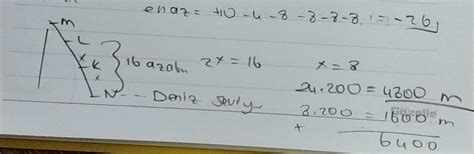 en az = +10 - 4 - 8 - 8 - 8 - 8 = -26
M
L
x
K
x
N --- Deniz
} 16 azalm 2x = 16 x = 8
24.200 = 4800 m
8.200 = 1600 m
+
6400